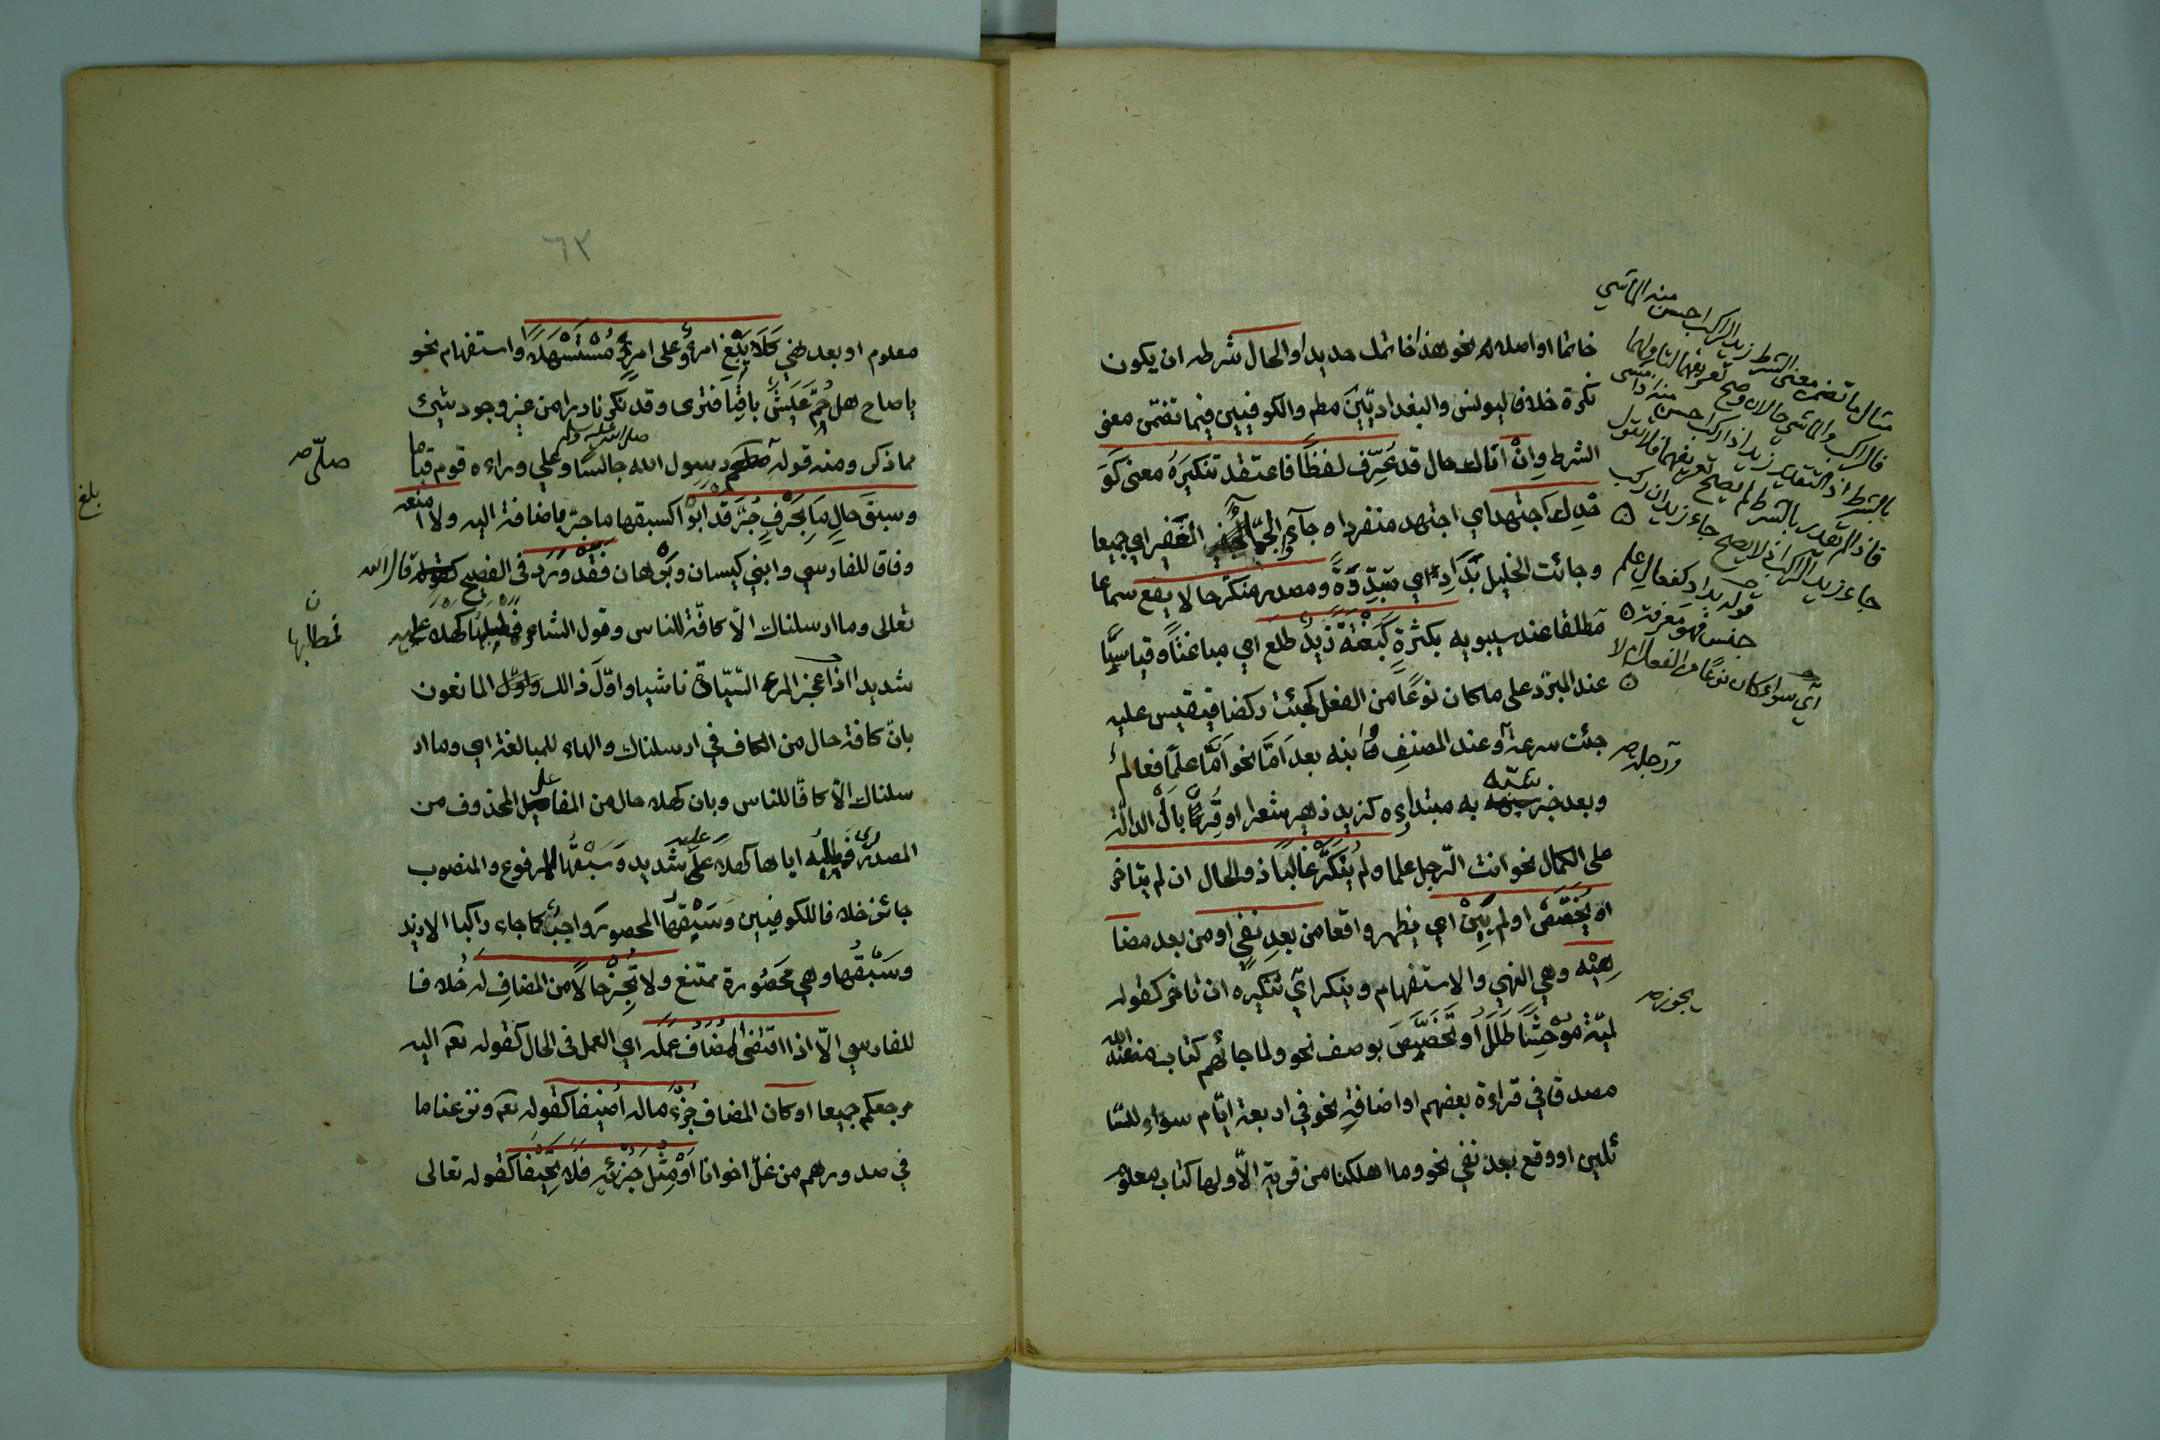 خاتما او اصلا له نحو هذا خاتمك حديدا والحال شرطه ان يكون
نكرة خلافا ليونس والبغداديّين مطم والكوفيين فيما تضمن معنى
الشرط وان اتاك حال قد عُرِّف لفظًا فاعتقد تنكيرَهُ معنى كَوَ
حْدِك اجتهد اي اجتهد منفردا وجاؤا الجمّاء الغَفير اي جميعا
وجائت الخيل بَدَادِ اي متبدّدَةً ومصدر منكر حالا يقع سماعا
مطلقا عند سيبويه بكثرةٍ كَبَغْتَةً زَيْدٌ طلع اي مباغتًا وقياسيًّا
عند المبرّد على ما كان نوعًا من الفعل كجئت ركضا فيقيس عليه
جئت سرعة وعند المصنف وابنه بعد اَمَّا نحو اَمَّا علمًا فعالمٌ
وبعد خبر شبّه به مبتداؤه كزيد زهير شعرا او قُرِنَ بال الدالّة
على الكمال نحو انت الرّجل علما ولم يُنَكَّرْ غالبًا ذو الحال ان لم يتاخر
او يُخَصَّصْ او لم يَبِنْ اي يظهر واقعا من بعدِ نفيٍ او من بعد مضا
هِيْهِ وهي النهي والاستفهام وينكر اي تنكيره ان تاخر كقوله
لميّة مُوْحِشًا طَلَلٌ او تَخَصَّصَ بوصف نحو ولما جائهم كتاب من عند الله
مصدقا في قراءة بعضهم او اضافةٍ نحو في اربعة ايّام سواءً للسّا
ئلين او وقع بعد نفي نحو وما اهلكنا من قرية الاّ ولها كتاب معلوم
مثال ما تضمن معنى الشرط زيد الراكب احسن منه الماشي
فالراكب والماشي حالان وصح تعريفهما لتاولهما
بالشرط اذ التقدير زيد اذا ركب احسن منه اذا مشى
فاذا لم يقدر بالشرط لم يصح تعريفهما فلا تقول
جاء زيد الراكب اذ لا يصح جاء زيد ان ركب
قوله بداد كفعال علم
جنس فهو معرفة
اي سواء كان نوعًا من الفعل ام لا
ورجله صح
يجوز صح
٦٣
معلوم او بعد نهي كَلَا يَبْغِ امرؤٌ على امرئٍ مُسْتَسْهِلًا واستفهام نحو
ياصاح هل حُمَّ عَيْشٌ باقيًا فترى وقد نكر نادرا من غير وجود شيئ
مما ذكر ومنه قوله صلى رسول الله صلى الله عليه وسلم جالسًا وعلي وراءه قوم قياما
وسبقَ حالٍ ما بحَرْفٍ جُرَّ قَدْ اَبَوْا كسبقها ما جرّ باضافة اليه ولا امنعه
وفاقا للفارسي وابني كيسان وبرهان فَقَدْ وَرَدَ فى الفصيح قال الله
تعالى وما ارسلناك الاّ كافّة للناس وقول الشاعر فمطلبها كهلا عليه
شديد اذا عجز المرء السّيّادة ناشيا واوّل ذالك المانعون
بانّ كافة حال من الكاف في ارسلناك والهاء للمبالغة اي وما ار
سلناك الاّ كافّا للناس وبان كهلا حال من الفاعل المحذوف من
المصدر اي فمطلبه اياها كهلا عليه شديد وَسَبْقُها المرفوع والمنصوب
جائز خلافا للكوفيين وَسَبْقها المحصور واجبٌ كما جاء راكبا الا زيد
وسَبْقُها وهي محصُورة ممتنع ولا تُجِزْ حالًا من المضافِ لَهُ خلافا
للفارسي الاّ اذا اقتضى المضُافُ عَمَلَه اي العمل فى الحال كقوله تعم اليه
مرجعكم جميعا او كان المضاف جُزْءَ ماله اُضِيفا كقوله تعم ونزعنا ما
في صدورهم من غلّ اخوانا اَوْ مِثْلَ جُزْئِهِ فلا تَحِيْفا كقوله تعالى
صلّى صح
بلغ
فمطلبها ن